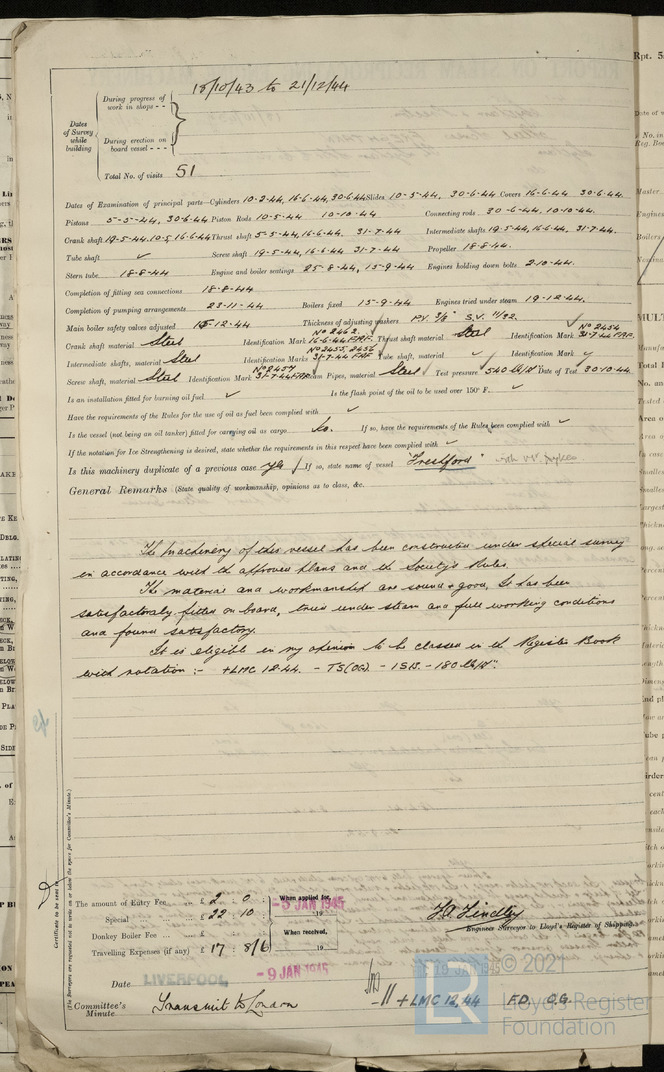 18/10/43 to 21/12/44
During progress of work in shops - -
Dates of Survey while building
During erection on board vessel - - -
Total No. of visits 51
Dates of Examination of principal parts—Cylinders 10-2-44, 16-6-44, 30-6-44 Slides 10-5-44, 30-6-44 Covers 16-6-44 30-6-44.
Pistons 5-5-44, 30-6-44 Piston Rods 10-5-44 10-10-44 Connecting rods 30-6-44, 10-10-44.
Crank shaft 19-5-44, 10-5, 16-6-44 Thrust shaft 5-5-44, 16-6-44, 31-7-44 Intermediate shafts 19-5-44, 16-6-44, 31-7-44.
Tube shaft ✓ Screw shaft 19-5-44, 16-6-44 31-7-44 Propeller 18-8-44.
Stern tube 18-8-44 Engine and boiler seatings 25-8-44, 15-9-44 Engines holding down bolts 2-10-44.
Completion of fitting sea connections 18-8-44
Completion of pumping arrangements 23-11-44 Boilers fixed 15-9-44 Engines tried under steam 19-12-44.
Main boiler safety valves adjusted 15-12-44 Thickness of adjusting washers P.V. 3/8" S.V. 11/32
Crank shaft material Steel Identification Mark No 2462 16-6-44 FAF. Thrust shaft material Steel Identification Mark No 2454 31-7-44 FAF.
Intermediate shafts, material Steel Identification Marks No 2455, 2456 31-7-44 FAF Tube shaft, material ✓ Identification Mark ✓
Screw shaft, material Steel Identification Mark No 2457 31-7-44 FAF Steam Pipes, material Steel Test pressure 540 lb/□" Date of Test 30-10-44.
Is an installation fitted for burning oil fuel ✓ Is the flash point of the oil to be used over 150° F. ✓
Have the requirements of the Rules for the use of oil as fuel been complied with ✓
Is the vessel (not being an oil tanker) fitted for carrying oil as cargo No. If so, have the requirements of the Rules been complied with ✓
If the notation for Ice Strengthening is desired, state whether the requirements in this respect have been complied with ✓
Is this machinery duplicate of a previous case Yes If so, state name of vessel "Freshford"
General Remarks (State quality of workmanship, opinions as to class, &c.
The machinery of this vessel has been constructed under special survey
in accordance with the approved plans and the Society's Rules.
The material and workmanship are sound & good. It has been
satisfactorily fitted on board, tried under steam and full working conditions
and found satisfactory.
It is eligible in my opinion to be classed in the Register Book
with notation :- +LMC 12.44. - TS(OG). - 1SB. - 180 lb/□".
Certificate to be sent to
(The Surveyors are requested not to write on or below the space for Committee's Minute.)
The amount of Entry Fee £ 2 . 0 : When applied for, -5 JAN 1945
Special £ 22 . 10 : 19
Donkey Boiler Fee £ : : When received,
Travelling Expenses (if any) £ 17 : 8/6 19
F.A. Findley
Engineer Surveyor to Lloyd's Register of Shipping.
Date LIVERPOOL - 9 JAN 1945
19 JAN 1945
© 2021
Committee's Minute Transmit to London
+ LMC 12,44 F.D. O.G.
LR
Lloyd's Register
Foundation